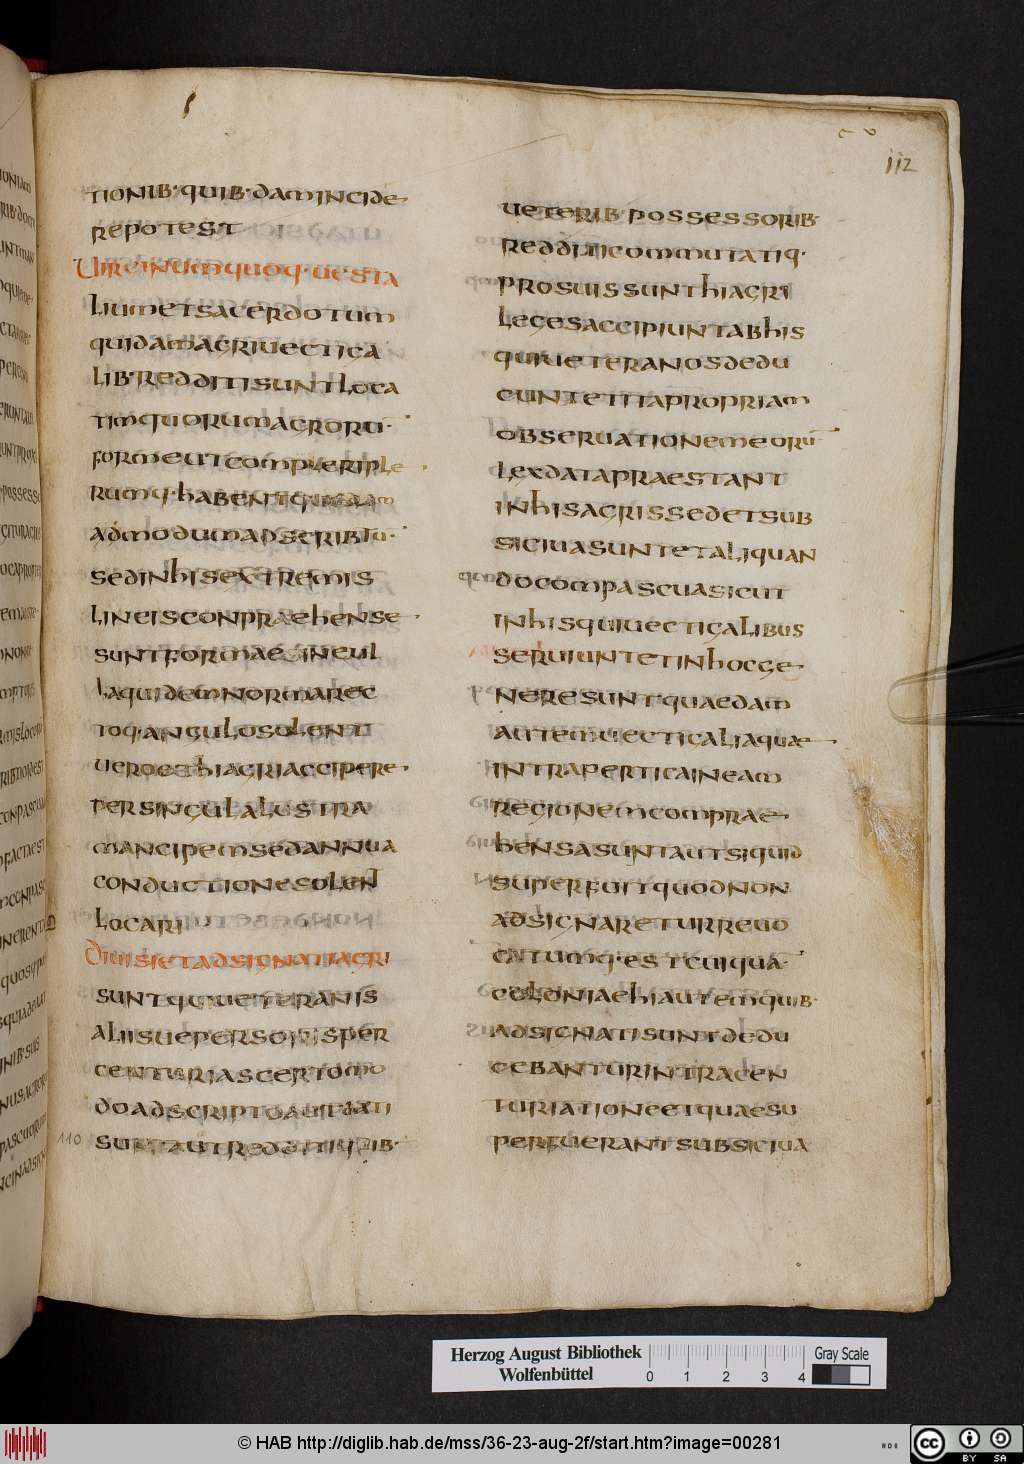 112
TIONIB·QUIB·DAMINCIDE
REPOTEST
VIRGINUMQUOQ·UESTA
LIUMETSACERDOTUM
QUIDAMAGRIUECTIGA
LIB·REDDITISUNTLOCA
TIMQUORUMAGRORU·
FORMEUTCOMPERI
RUMQ·HABENT
ADMODUMADSCRIBTU·
SEDINHISEXTREMIS
LINEISCONPRAEHENSE
SUNTFORMAESINEUL
LAQUIDEMNORMAREC
TOQ·ANGULOSOLENT
UEROETHIAGRIACCIPERE
PERSINGULALUSTRA
MANCIPEMSEDANNUA
CONDUCTIONESOLENT
LOCARI
DIUISIETADSIGNATIAGRI
SUNTQUIUETERANIS
ALIISUEPERSONISPER
CENTURIASCERTOMO
DOADSCRIPTOAUTDATI
SUNTAUTREDDITIQUIB·
UETERIB·POSSESSORIB·
REDDITICOMMUTATIQ·
PROSUISSUNTHIAGRI
LEGESACCIPIUNTABHIS
QUIUETERANOSDEDU
CUNTETITAPROPRIAM
OBSERUATIONEMEORU
LEXDATAPRAESTANT
INHISAGRISSEDETSUB
SICIUASUNTETALIQUAN
DOCOMPASCUASICUT
INHISQUIUECTIGALIBUS
SERUIUNTETINHOCGE
NERESUNTQUAEDAM
AUTEMUECTIGALIAQUAE
INTRAPERTICAINEAM
REGIONEMCOMPRAE
HENSASUNTAUTSIQUID
SUPERFUITQUODNON
ADSIGNARETURREUO
CATUMQ·ESTCUIQUA·
COLONIAEHIAUTEMQUIB·
ADSIGNATISUNTDEDU
CEBANTURINTRACEN
TURIATIONEETQUAESU
PERFUERANTSUBSICIUA
110
Herzog August Bibliothek
Wolfenbüttel
0 1 2 3 4
Gray Scale
© HAB http://diglib.hab.de/mss/36-23-aug-2f/start.htm?image=00281
CC BY SA